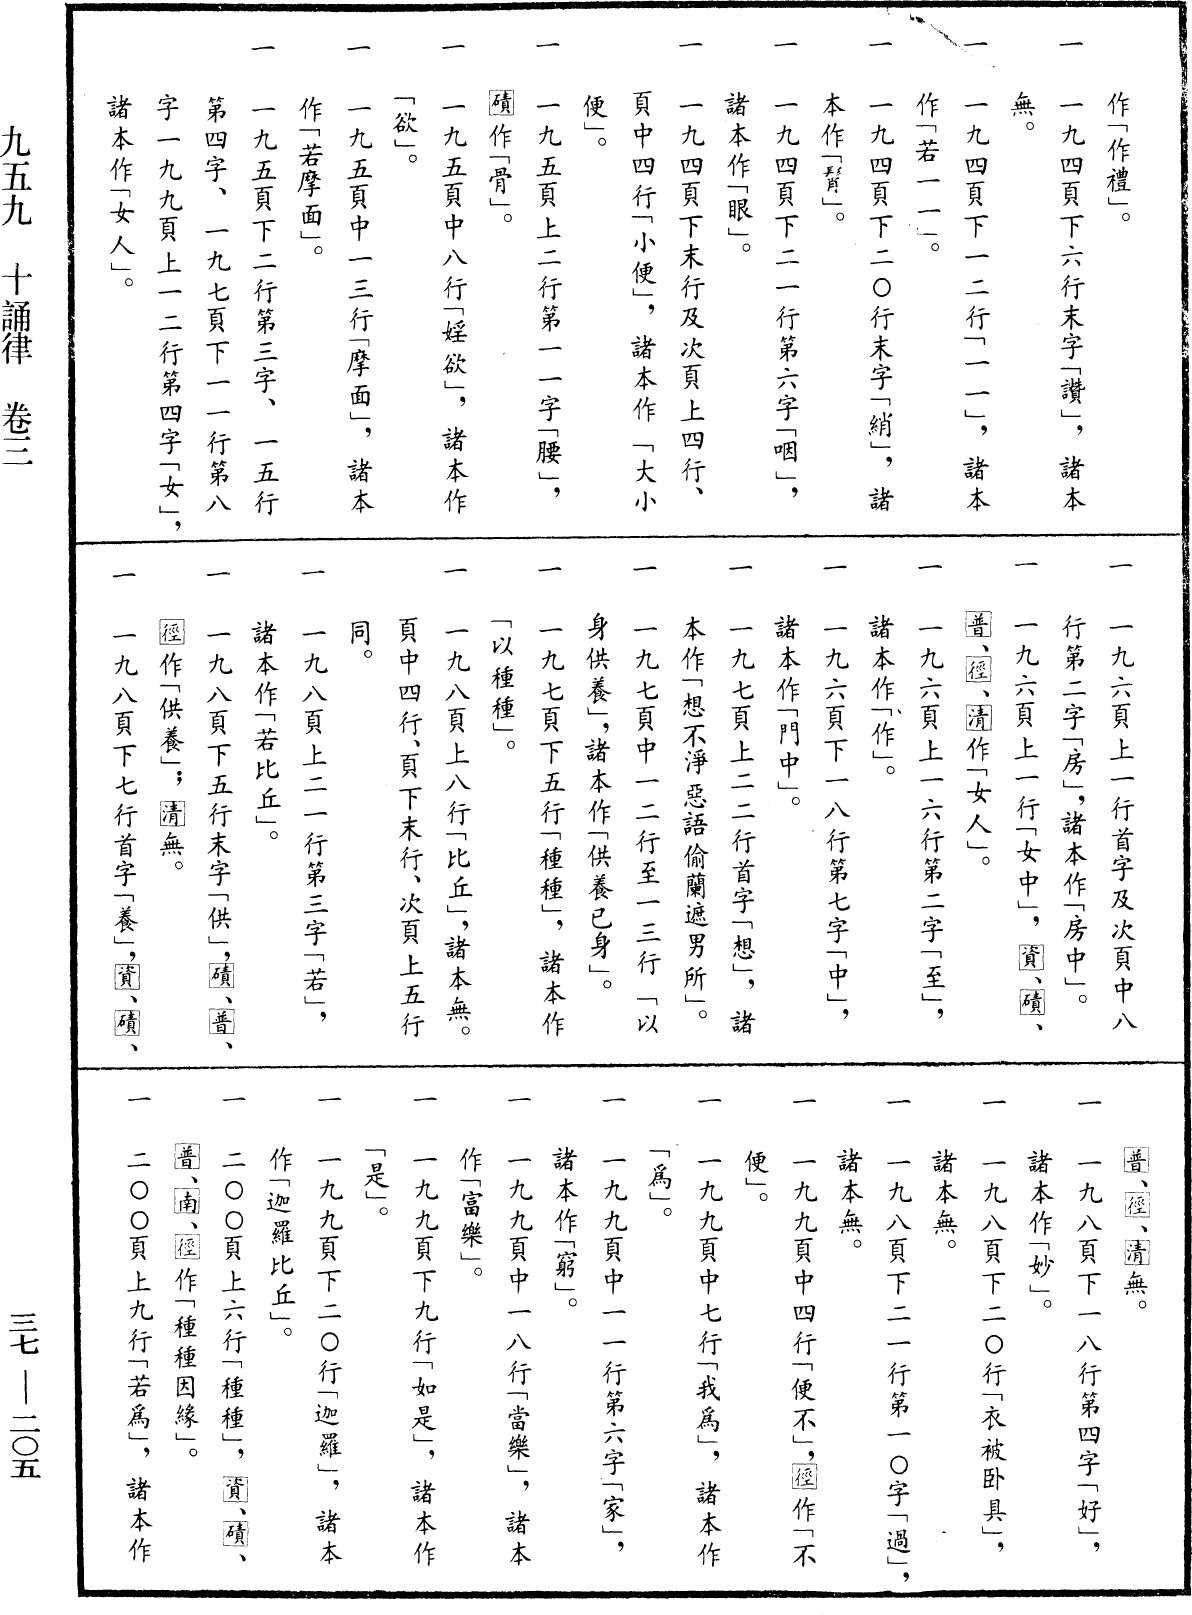 作「作禮」。
一 一九四頁下六行末字「讚」，諸本
無。
一 一九四頁下一二行「一一」，諸本
作「若一一」。
一 一九四頁下二〇行末字「綃」，諸
本作「髾」。
一 一九四頁下二一行第六字「咽」，
諸本作「眼」。
一 一九四頁下末行及次頁上四行、
頁中四行「小便」，諸本作「大小
便」。
一 一九五頁上二行第一一字「腰」，
磧作「骨」。
一 一九五頁中八行「婬欲」，諸本作
「欲」。
一 一九五頁中一三行「摩面」，諸本
作「若摩面」。
一 一九五頁下二行第三字、一五行
第四字、一九七頁下一一行第八
字一九九頁上一二行第四字「女」，
諸本作「女人」。
一 一九六頁上一行首字及次頁中八
行第二字「房」，諸本作「房中」。
一 一九六頁上一行「女中」，資、磧、
普、徑、清作「女人」。
一 一九六頁上一六行第二字「至」，
諸本作「作」。
一 一九六頁下一八行第七字「中」，
諸本作「門中」。
一 一九七頁上二二行首字「想」，諸
本作「想不淨惡語偷蘭遮男所」。
一 一九七頁中一二行至一三行「以
身供養」，諸本作「供養已身」。
一 一九七頁下五行「種種」，諸本作
「以種種」。
一 一九八頁上八行「比丘」，諸本無。
頁中四行、頁下末行、次頁上五行
同。
一 一九八頁上二一行第三字「若」，
諸本作「若比丘」。
一 一九八頁下五行末字「供」，磧、普、
徑作「供養」；清無。
一 一九八頁下七行首字「養」，資、磧、
普、徑、清無。
一 一九八頁下一八行第四字「好」，
諸本作「妙」。
一 一九八頁下二〇行「衣被卧具」，
諸本無。
一 一九八頁下二一行第一〇字「過」，
諸本無。
一 一九九頁中四行「便不」，徑作「不
便」。
一 一九九頁中七行「我爲」，諸本作
「爲」。
一 一九九頁中一一行第六字「家」，
諸本作「窮」。
一 一九九頁中一八行「當樂」，諸本
作「富樂」。
一 一九九頁下九行「如是」，諸本作
「是」。
一 一九九頁下二〇行「迦羅」，諸本
作「迦羅比丘」。
一 二〇〇頁上六行「種種」，資、磧、
普、南、徑作「種種因緣」。
一 二〇〇頁上九行「若爲」，諸本作
九五九 十誦律 卷三
三七—二〇五